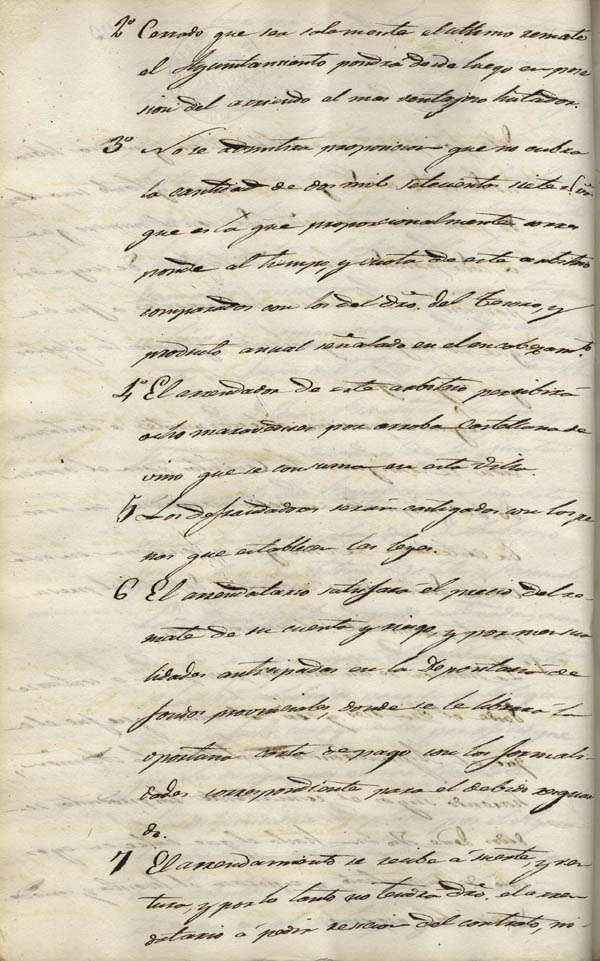 2º Cerrado que sea solamente el ultimo remate
el Ayuntamiento pondrá desde luego en pose
sion del arriendo al mas ventajoso licitador.
3º No se admitira proposicion que no cubra
la cantidad de dos mil setecientos siete
que es la que proporcionalmente corres
ponde al tiempo, y cuota de este arbitrio
comparados con los del dro. del Tesoro, y
producto anual señalado en el encabezamto.
4º El arrendador de este arbitrio percibirá
ocho maravedises por arroba Castellana de
vino que se consuma en esta Villa.
5 Los defraudadores serán castigados con las pe
nas que establecen las leyes.
6 El arrendatario satisfará el precio del re-
mate de su cuenta y riesgo, y por mensua
lidades anticipadas en la Depositaria de
fondos provinciales, donde se le librará la
oportuna carta de pago con las formali
dades correspondiente para el debido resguar
do.
7 El arrendamiento se recibe a suerte, y ven
tura, y por lo tanto no tendra dro. el arren
datario a pedir rescicion del contrato, ni